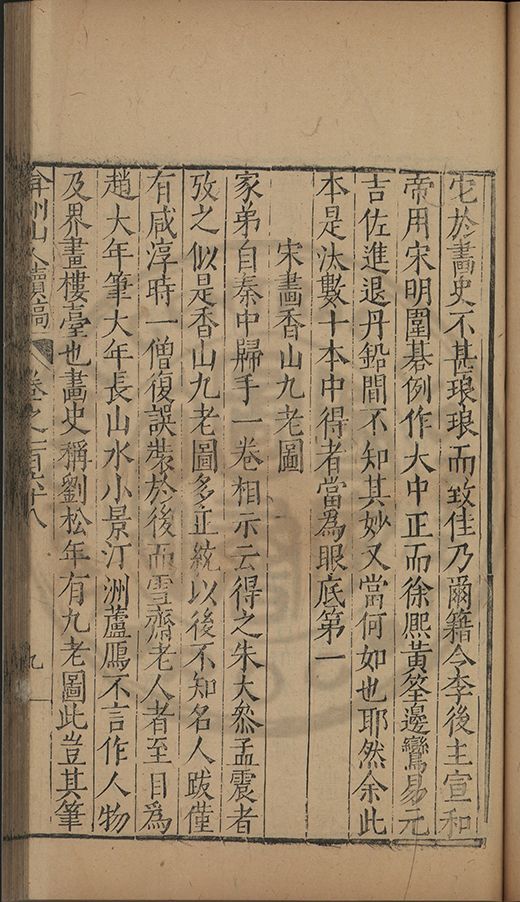 它於畫史不甚琅琅而致佳乃爾籍令李後主宣和
帝用宋明圍碁例作大中正而徐熈黃筌邊鸞易元
吉佐進退丹鉛間不知其妙又當何如也耶然余此
本是汰數十本中得者當爲眼底第一
宋畫香山九老圖
家弟自秦中歸手一卷相示云得之朱大叅孟震者
攷之似是香山九老圖多正統以後不知名人跋僅
有咸淳時一僧復誤裝於後而雪齋老人者至目爲
趙大年筆大年長山水小景汀洲蘆鴈不言作人物
及界畫樓臺也畫史稱劉松年有九老圖此豈其筆
弇州山人續稿 卷之一百六十八 九